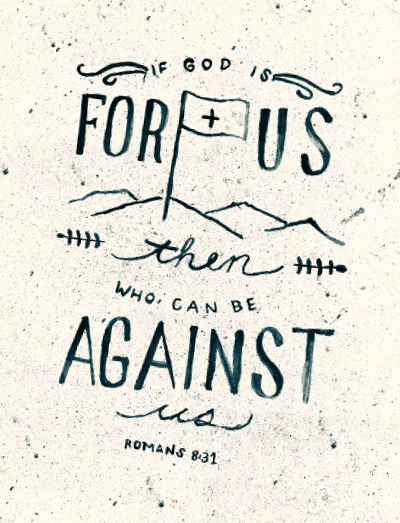 IF GOD IS
FOR US
then
WHO, CAN BE
AGAINST
us
ROMANS 8:31